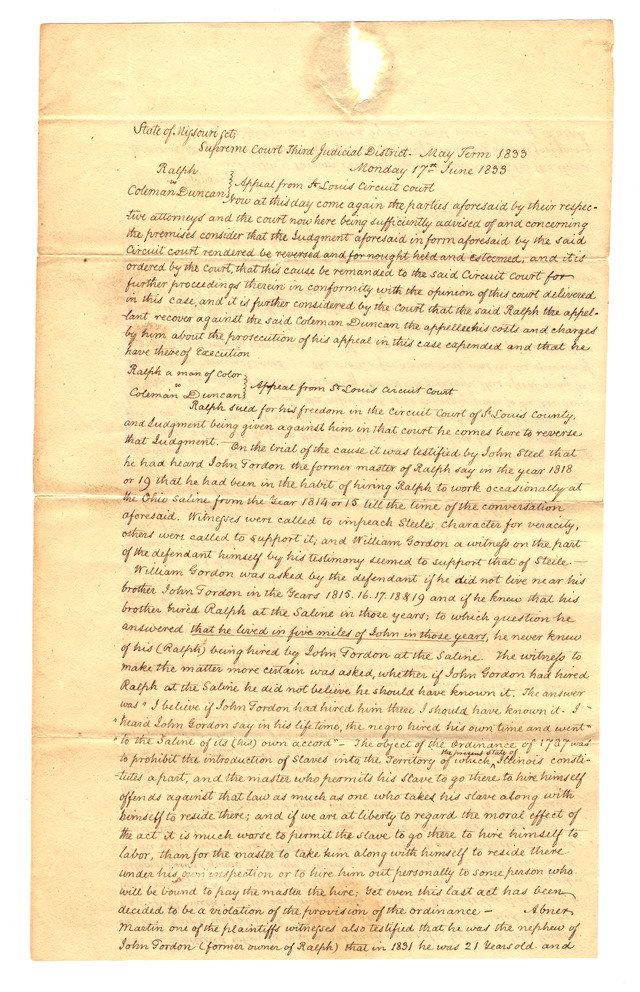 State of Missouri Sct,
Supreme Court Third Judicial District. May Term 1833
Monday 17th June 1833
Ralph
vs
Coleman Duncan } Appeal from St Louis Circuit court
Now at this day come again the parties aforesaid by their respec-
tive attorneys and the court now here being sufficiently advised of and concerning
the premises consider that the Judgment aforesaid in form aforesaid by the said
Circuit court rendered be reversed and for nought held and esteemed, and it is
ordered by the court, that this cause be remanded to the said Circuit Court for
further proceedings therein in conformity with the opinion of this court delivered
in this case, and it is further considered by the Court that the said Ralph the appel-
lant recover against the said Coleman Duncan the appellee his costs and charges
by him about the prosecution of his appeal in this case expended and that he
have thereof Execution
Ralph a man of Color
vs
Coleman Duncan } Appeal from St Louis Circuit Court
Ralph sued for his freedom in the Circuit Court of St Louis County,
and Judgment being given against him in that court he comes here to reverse
that Judgment. — On the trial of the cause it was testified by John Steel that
he had heard John Tordon the former master of Ralph say in the year 1818
or 19 that he had been in the habit of hiring Ralph to work occasionally at
the Ohio Saline from the Year 1814 or 15 till the time of the conversation
aforesaid. Witnesses were called to impeach Steeles character for veracity,
others were called to support it; and William Gordon a witness on the part
of the defendant himself by his testimony seemed to support that of Steele. —
William Gordon was asked by the defendant if he did not live near his
brother John Tordon in the Years 1815. 16. 17. 18 & 19 and if he knew that his
brother hired Ralph at the Saline in those years; to which question he
answered that he lived in five miles of John in those years, he never knew
of his (Ralph) being hired by John Tordon at the Saline. The witness to
make the matter more certain was asked, whether if John Gordon had hired
Ralph at the Saline he did not believe he should have known it. The answer
was "I believe if John Tordon had hired him there I should have known it. I
"heard John Gordon say in his life time, the negro hired his own time and went"
"to the Saline of its (his) own accord" — The object of the Ordinance of 1787 was
to prohibit the introduction of Slaves into the Territory of which the present state of Illinois consti-
tutes a part, and the master who permits his Slave to go there to hire himself
offends against that law as much as one who takes his slave along with
himself to reside there; and if we are at liberty to regard the moral effect of
the act it is much worse to permit the slave to go there to hire himself to
labor, than for the master to take him along with himself to reside there
under his own inspection or to hire him out personally to some person who
will be bound to pay the master the hire; Yet even this last act has been
decided to be a violation of the provision of the ordinance — Abner
Martin one of the plaintiffs witnesses also testified that he was the nephew of
John Tordon (former owner of Ralph) that in 1831 he was 21 Years old and